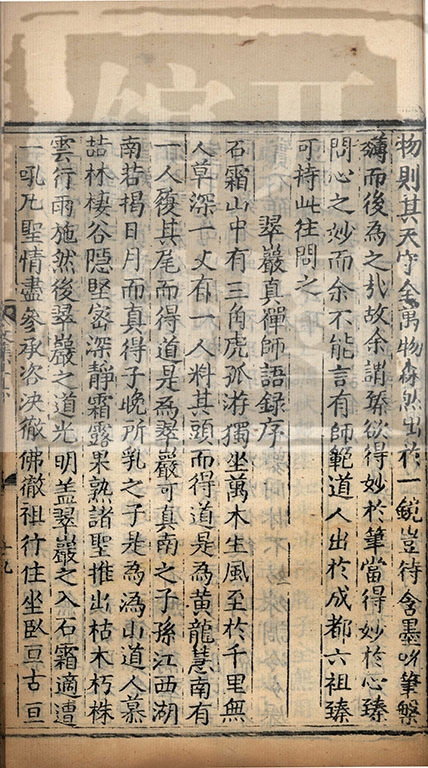 物則其天守全萬物森然出於一鏡豈待含墨吮筆槃
礴而後為之哉故余謂臻欲得妙於筆當得妙於心臻
問心之妙而余不能言有師範道人出於成都六祖臻
可持此往問之
翠巖真禪師語錄序
石霜山中有三角虎孤游獨坐萬木生風至於千里無
人草深一丈有一人料其頭而得道是為黃龍慧南有
一人履其尾而得道是為翠巖可真南之子孫江西湖
南若揭日月而真得子晚所乳之子是為溈山道人慕
喆林棲谷隱堅密深靜霜露果熟諸聖推出枯木朽株
雲行雨施然後翠巖之道光明盖翠巖之入石霜適遭
一吼凡聖情盡參承咨決徹佛徹祖行住坐臥亘古亘
十九